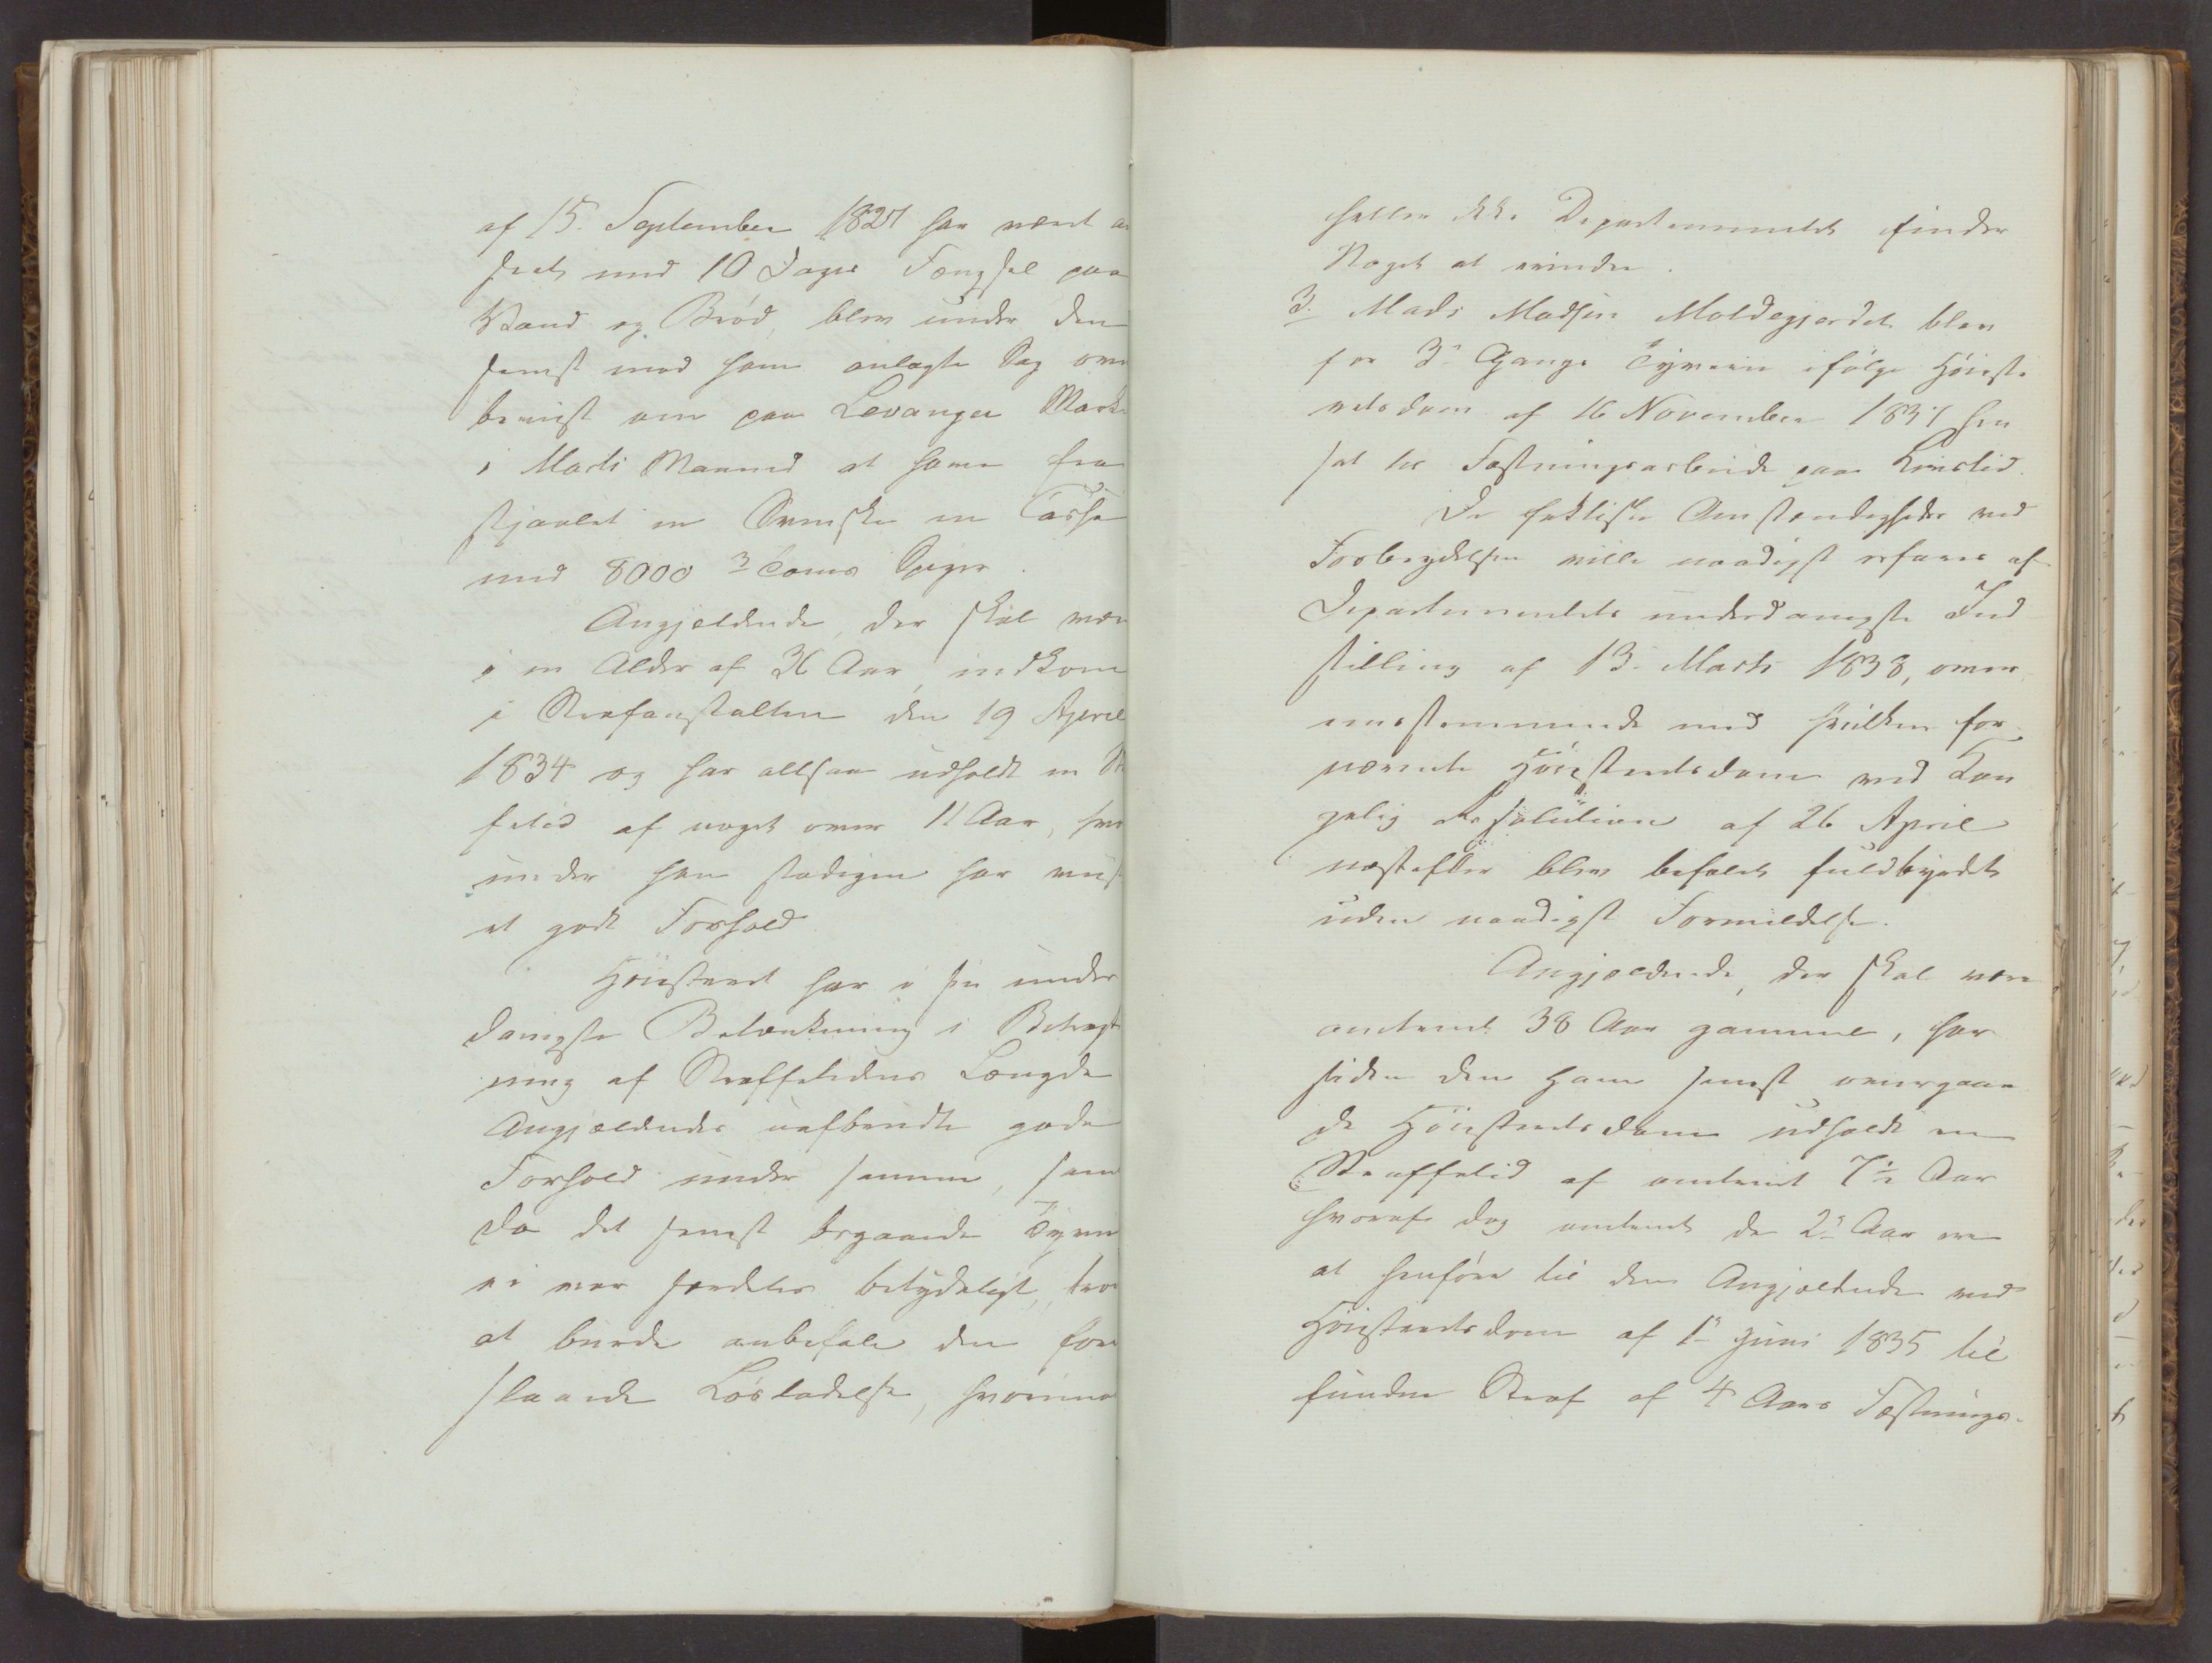 af 15. September 1827 har været an
seet med 10 Dages Fængsel paa
Vand og Brød, blev under den
senest mod ham anlagte Sag over
beviist om paa Levanger Marke
i Marts Maaned at have fra
stjaalet en Svenske en Casse
med 8000 Speger.
Angjeldende, der skal være
i en Alder af 36 Aar, indkom
i Strafanstalten den 19 April
1834 og har altsaa udholdt en St
fetid af noget over 11 Aar, hvor
under han stadigen har viist
et godt Forhold
Høiesteret har i sin under
danigste Betænkning i Betragt
ning af Straffetidens Længde
Angjeldendes uafbrudte gode
Forhold under samme, samt
da det senest begaaede Tyveri
ei var særdeles betydeligt, troe
at burde anbefale den fore
slaaede Løsladelse, hvorimod
heller ikke Departementet finder
Noget at erindre.
3. Mads Madsen Moldegjerdet blev
for 3die Gange Tyverie ifølge Høieste
retsdom af 16 November 1837 hen
sat til Fæstningsarbeide paa Livstid.
De faktiske Omstændigheder ved
Forbrydelsen ville naadigst erfares af
Departementets underdanigste Ind
stilling af 13. Marts 1838, over
eensstemmende med hvilken for
nævnte Høiesteretsdom ved Kon
gelig Resolution af 26 April
næstefter blev befalet fuldbyrdet
uden naadigst Formildelse.
Angjeldende, der skal være
omtrent 38 Aar gammel, har
siden den ham senest overgaae
de Høiesteretsdom udholdt en
Straffetid af omtrent 7½ Aar
hvoraf dog omtrent de 2de Aar ere
at henføre til den Angjeldende ved
Høiesteretsdom af 1ste Juni 1835 til
fundne Straf af 4 Aars Fæstnings-